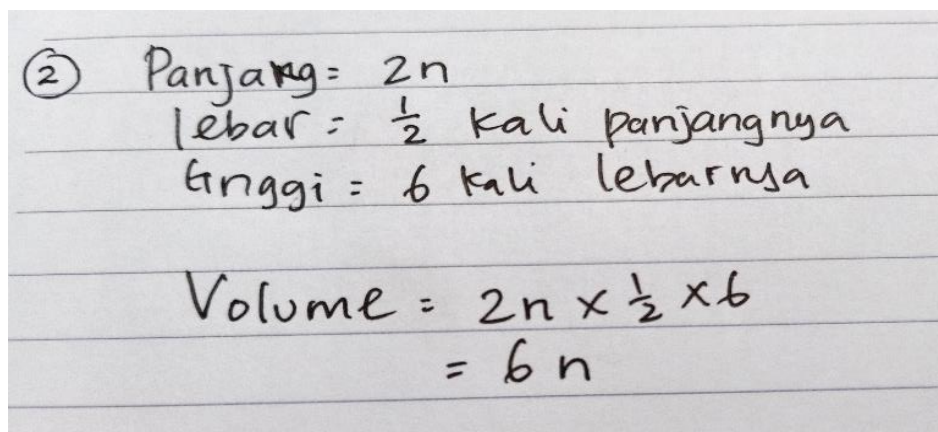 ② Panjang = 2n
lebar = 1/2 kali panjangnya
tinggi = 6 kali lebarnya
Volume = 2n × 1/2 × 6
= 6n